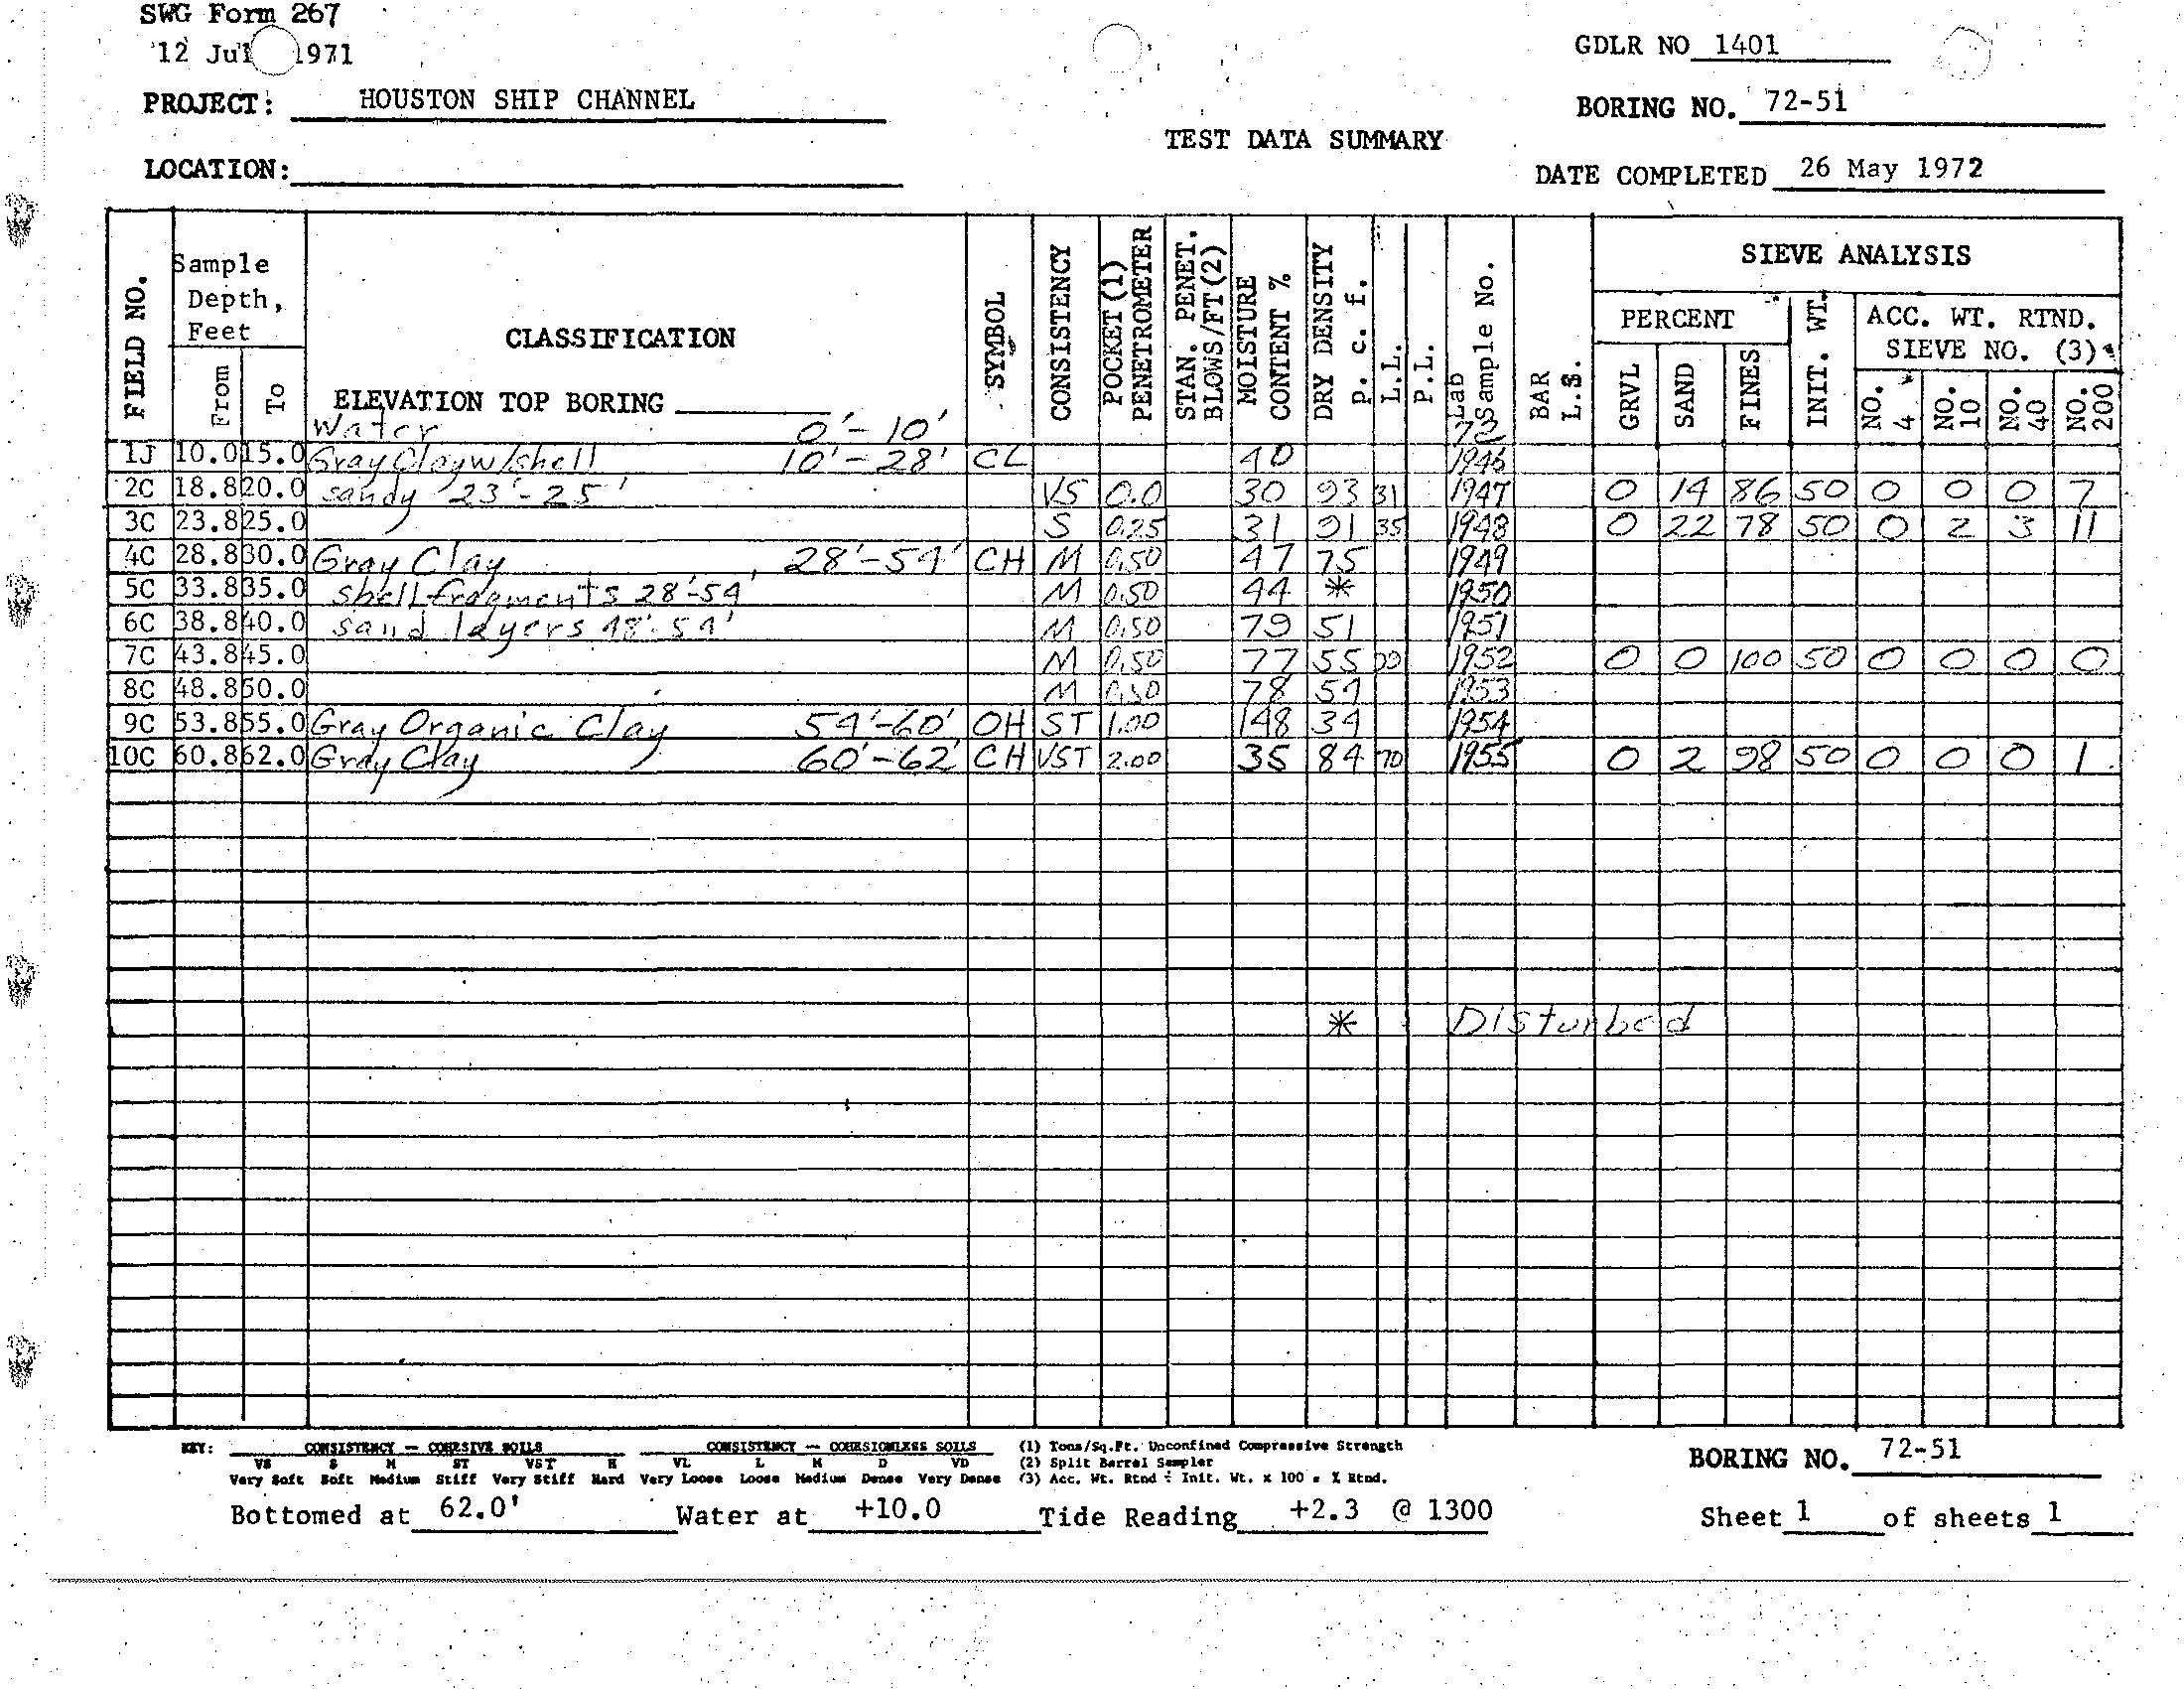 SWG Form 267
12 Jul 1971
GDLR NO 1401
PROJECT: HOUSTON SHIP CHANNEL
BORING NO. 72-51
TEST DATA SUMMARY
LOCATION:
DATE COMPLETED 26 May 1972
FIELD NO.
Sample Depth, Feet
From
To
CLASSIFICATION
ELEVATION TOP BORING
SYMBOL
CONSISTENCY
POCKET (1) PENETROMETER
STAN. PENET. BLOWS/FT(2)
MOISTURE CONTENT %
DRY DENSITY p. c. f.
L.L.
P.L.
Lab Sample No.
BAR L.S.
SIEVE ANALYSIS
PERCENT
GRVL
SAND
FINES
INIT. WT.
ACC. WT. RTND.
SIEVE NO. (3)
NO. 4
NO. 10
NO. 40
NO. 200
Water 0'-10' 72
1J 10.0 15.0 Gray Clay w/shell 10'-28' CL 40 1946
2C 18.8 20.0 sandy 23'-25' VS 0.0 30 93 31 1947 0 14 86 50 0 0 0 7
3C 23.8 25.0 S 0.25 31 91 35 1948 0 22 78 50 0 2 3 11
4C 28.8 30.0 Gray Clay 28'-54' CH M 0.50 47 75 1949
5C 33.8 35.0 shell fragments 28'-54' M 0.50 44 * 1950
6C 38.8 40.0 sand layers 48'-54' M 0.50 79 51 1951
7C 43.8 45.0 M 0.50 77 55 1952 0 0 100 50 0 0 0 0
8C 48.8 50.0 M 0.50 78 54 1953
9C 53.8 55.0 Gray Organic Clay 54'-60' OH ST 1.00 148 34 1954
10C 60.8 62.0 Gray Clay 60'-62' CH VST 2.00 35 84 70 1955 0 2 98 50 0 0 0 1
* Disturbed
KEY: CONSISTENCY — COHESIVE SOILS CONSISTENCY — COHESIONLESS SOILS (1) Tons/Sq.Ft. Unconfined Compressive Strength
VS S M ST VST H VL L M D VD (2) Split Barrel Sampler
Very Soft Soft Medium Stiff Very Stiff Hard Very Loose Loose Medium Dense Very Dense (3) Acc. Wt. Rtnd ÷ Init. Wt. x 100 = % Rtnd.
BORING NO. 72-51
Bottomed at 62.0' Water at +10.0 Tide Reading +2.3 @ 1300 Sheet 1 of sheets 1